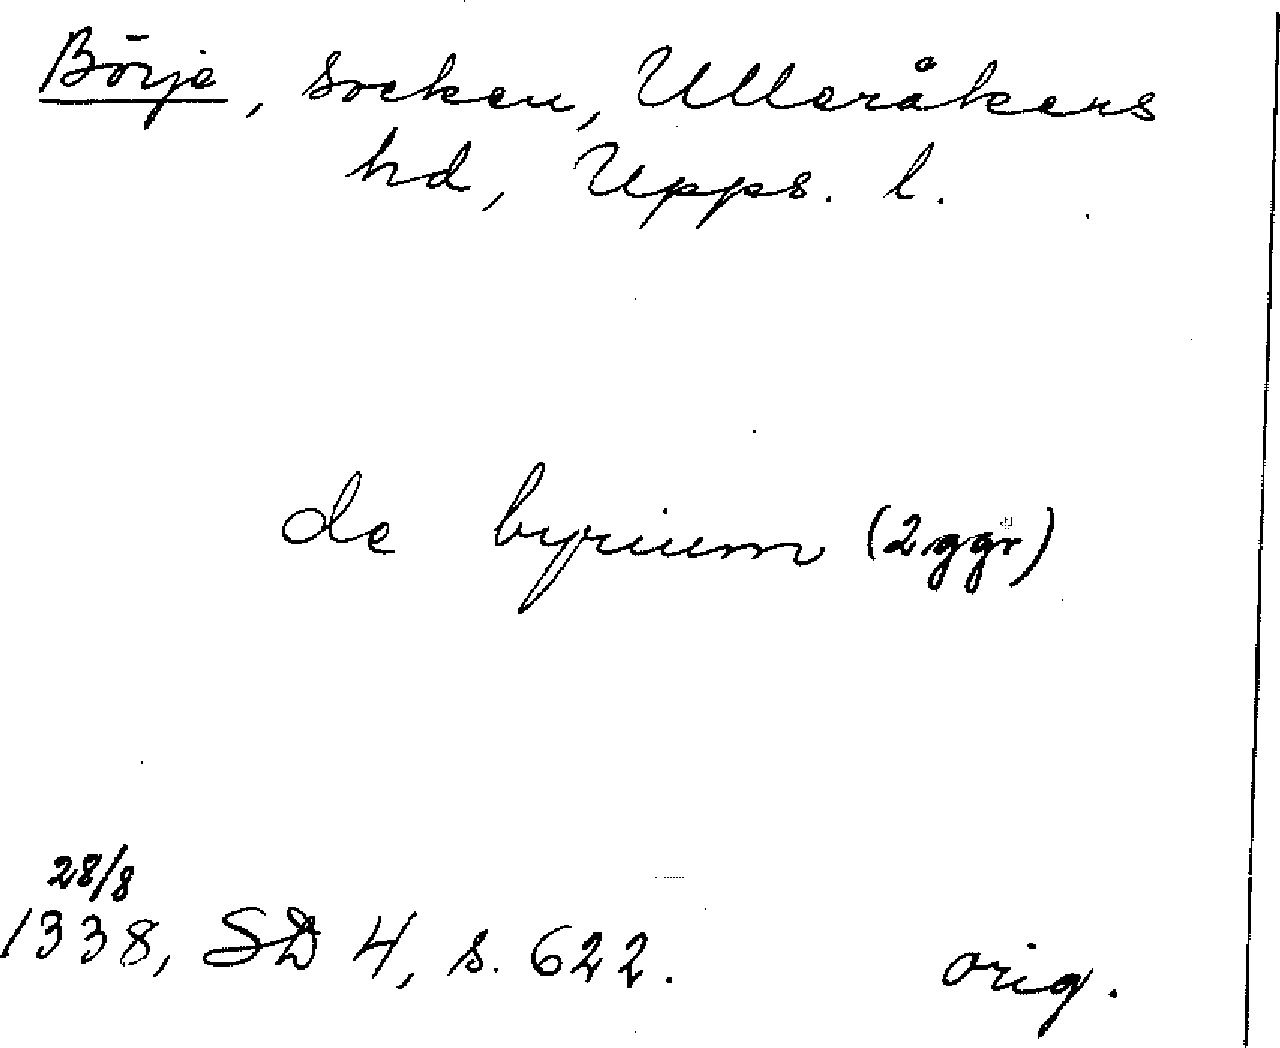 Börje, socken, Ulleråkers
hd, Upps. l.
de byrium (2 ggr)
28/8
1338, SD 4, s. 622. orig.